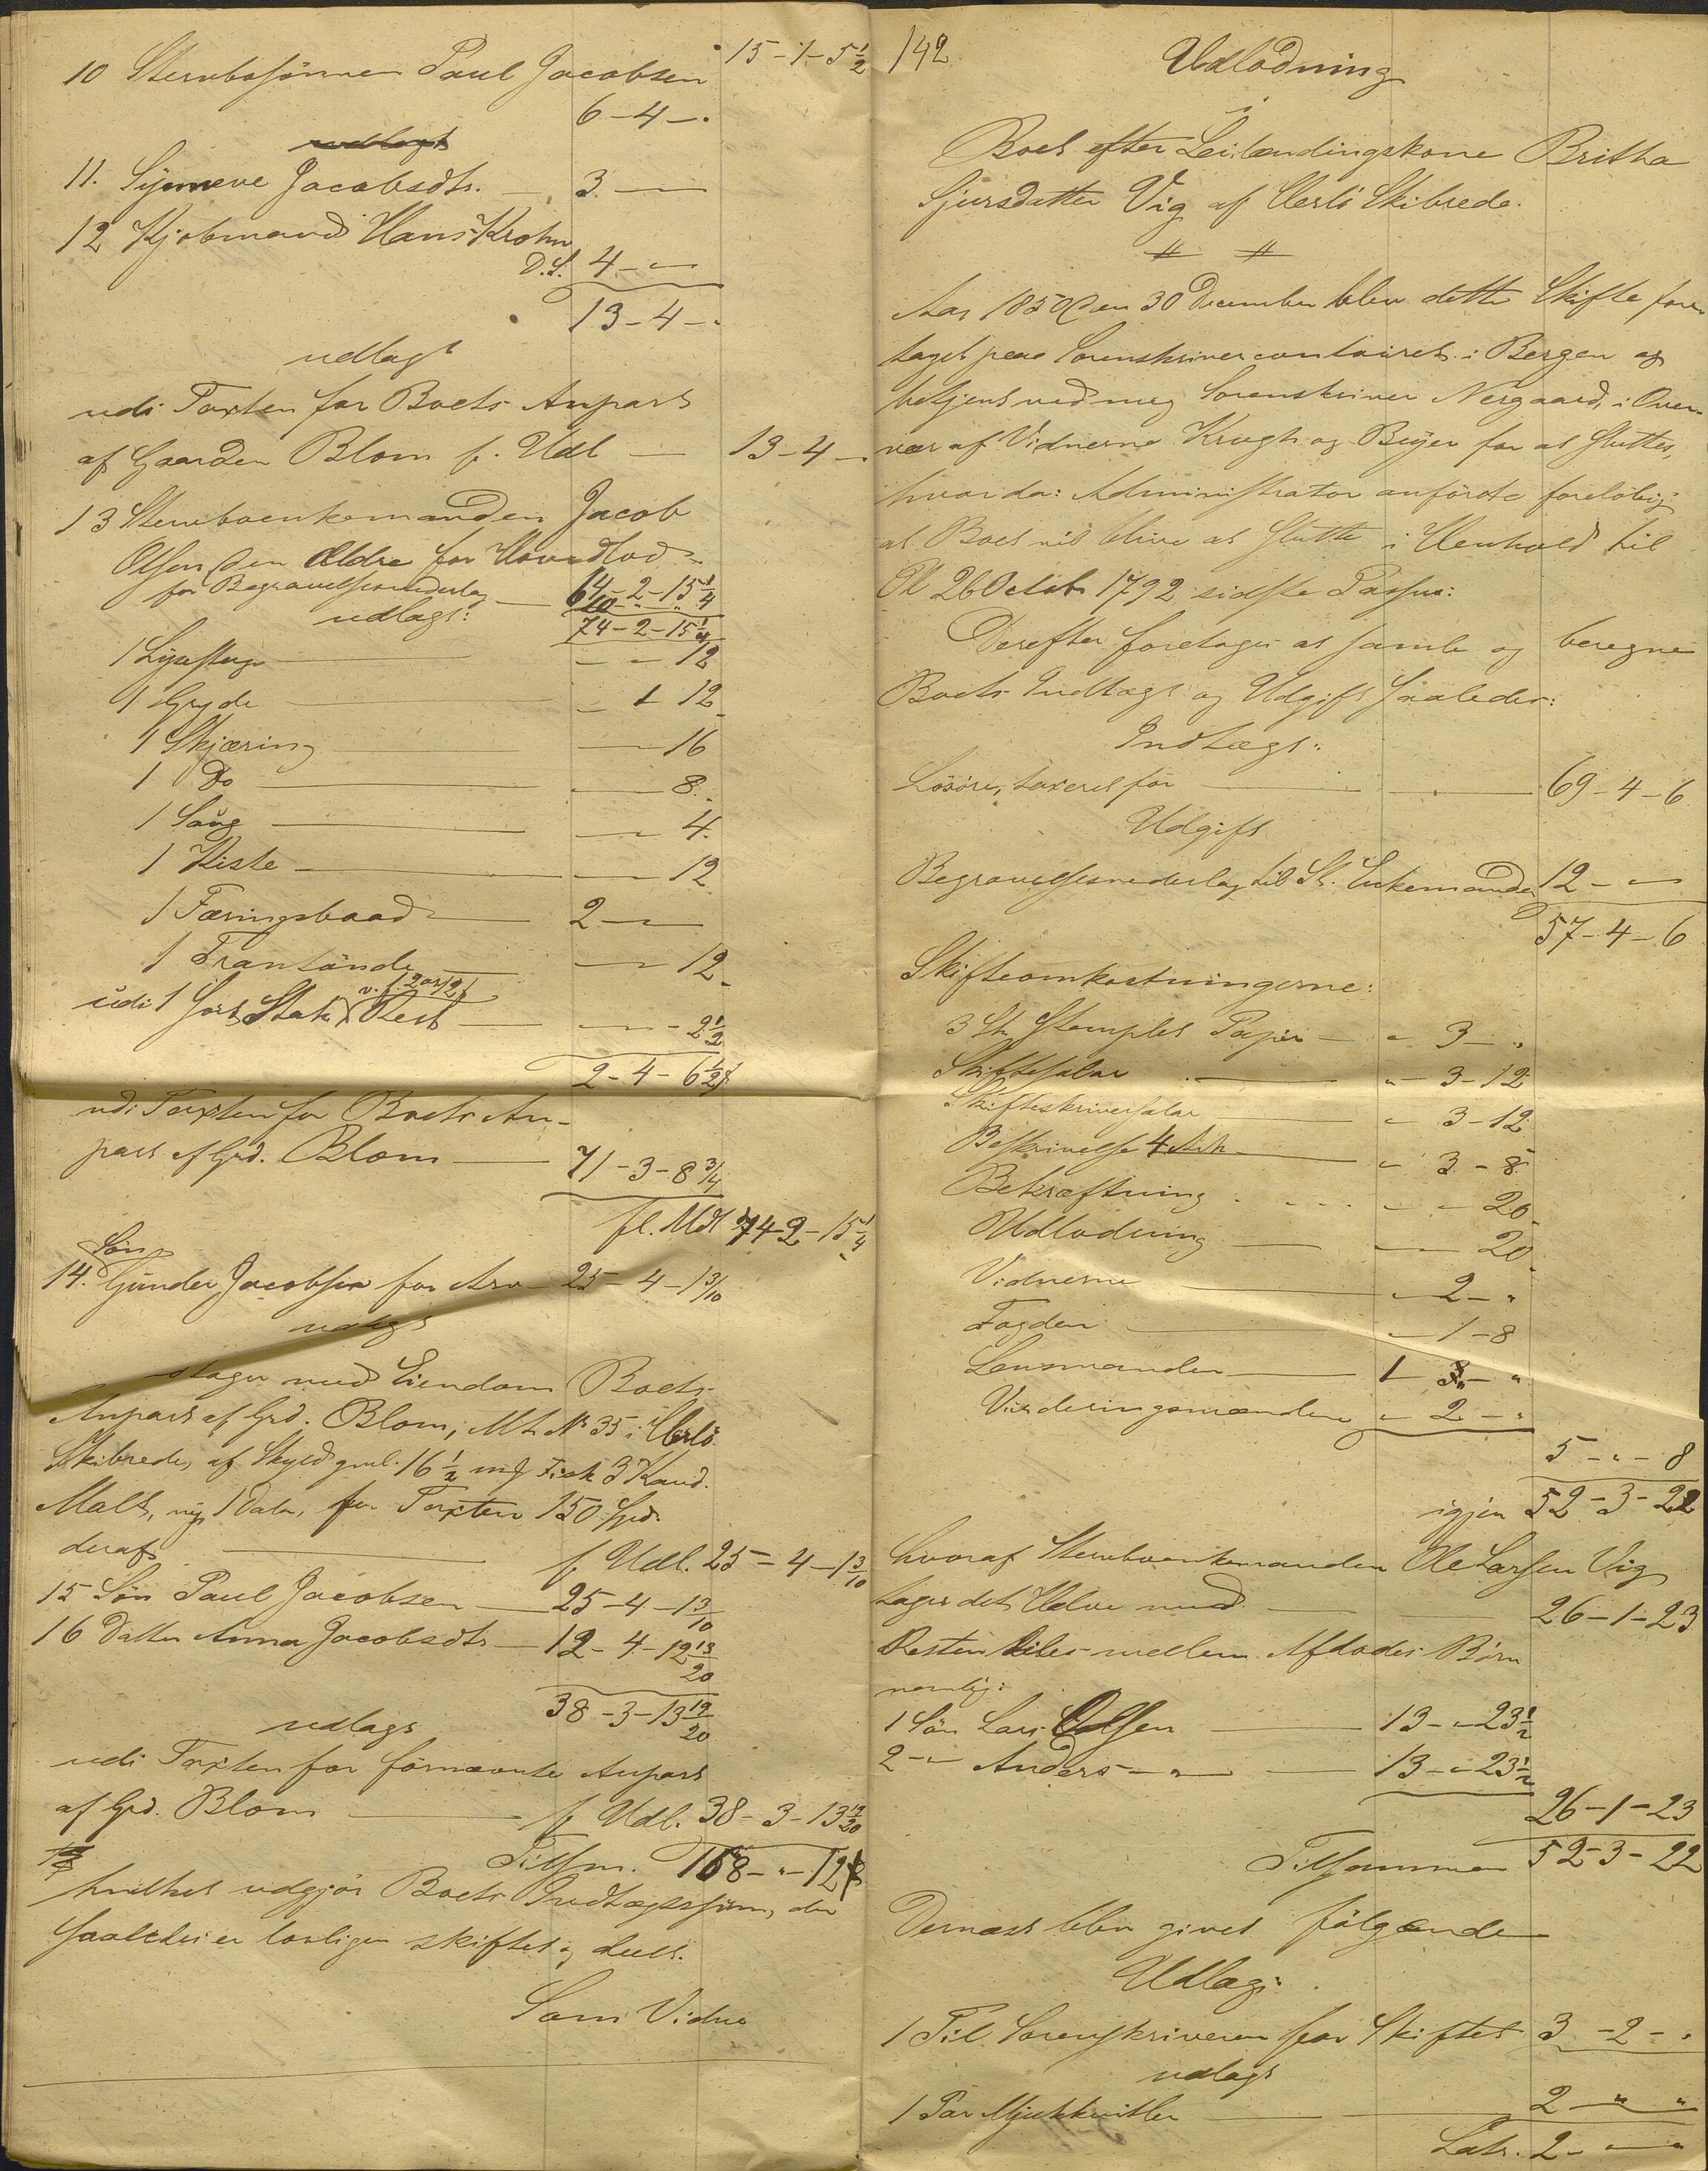 15-1-5½
10 Stervbosönnen Paul Jacobsen
6-4-"
udlagt
11. Synneve Jacobsdtr. — 3 —
12 Kjøbmand Hans Krohn
D.S. 4 - "
13-4-"
udlagt
udi Taxten for Boets Anpart
af Gaarden Blom f. Udl — 13-4-"
13 Stervboenkemanden Jacob
Olsen den Ældre for Hovedlod
64-2-15¼
for Begravelsesvederlag — 10 - " - "
udlagt: 74-2-15¼
1 Lysestage — " - " 12
1 Gryde — " 1 12
1 Skjæring — 16
1 Do — 8
1 Saug — 4
1 Kiste — 12
1 Færingsbaad — 2 - "
1 Trantönde — 12
udi 1 Sort Stak v. f. 2 ort 2 ß Rest — 2½
2-4-6½
udi Taxten for Boets An-
part af Grd. Blom — 71-3-8¾
fl. Udl 74-2-15¼
Sön
14. Gunder Jacobsen for Arv 25-4-1 3/10
udlagt
tager med Eiendom Boets
Anpart af Grd. Blom, Mt. No 35 i Herlö
Skibrede, af Skyld gml. 16½ mf Fisk 3 Kand.
Malt, ny 1 Daler, for Taxten 150 Spd.
deraf — f Udl. 25-4-1 3/10
15 Sön Paul Jacobsen — 25-4-1 3/10
16 Datter Anna Jacobsdtr — 12-4-12 13/20
38-3-13 19/20
udlagt
udi Taxten for fornævnte Anpart
af Grd. Blom — f Udl. 38-3-13 19/20
Tilsm. 168-"-12
hvilket udgjör Boets Indtægtssum, der
saaledes er lovligen skiftet og deelt.
Som Vidne
142
Udlodning
i
Boet efter Leilændingskone Britha
Sjursdatter Vig af Herlö Skibrede.
Aar 1850 den 30 December blev dette Skifte fore-
taget paa Sorenskrivercontoiret i Bergen og
betjent ved mig Sorenskriver Nergaard, i Over-
vær af Vidnerne Krogh og Beyer for at sluttes,
hvorda: Administrator anförte foreløbig
at Boet vil blive at slutte i Henhold til
Pl 26 Octob 1792 sidste Passus:
Derefter foretages at samle og beregne
Boets Indtægt og Udgift saaledes:
Indtægt:
Lösöre, taxeret for — 69-4-6
Udgift
Begravelsesvederlag til St. Enkemanden 12 - "
57-4-6
Skifteomkostningerne:
3 St. Stemplet Papir — " 3 - "
Skiftesalar — " 3-12
Skifteskriversalar — " 3-12
Beskrivelse 4 Ark — " 3-8
Bekræftning — " - 20
Udlodning — 20
Vidnerne — " 2 - "
Fogden — " 1-8
Lensmanden — 1 - " - "
Vurderingsmændene " 2 - "
5-"-8
igjen 52-3-22
hvoraf Stervboenkemanden Ole Larsen Vig
tager det Halve med — 26-1-23
Resten deles mellem Afdödes Börn
nemlig:
1 Sön Lars Olsen — 13-"-23½
2 - " Anders - " — 13-"-23½
26-1-23
Tilsammen 52-3-22
Dernæst blev givet fölgende
Udlæg:
1 Til Sorenskriveren for Skiftet 3-2-"
udlagt
1 Par — 2 " "
Lats. 2 - "